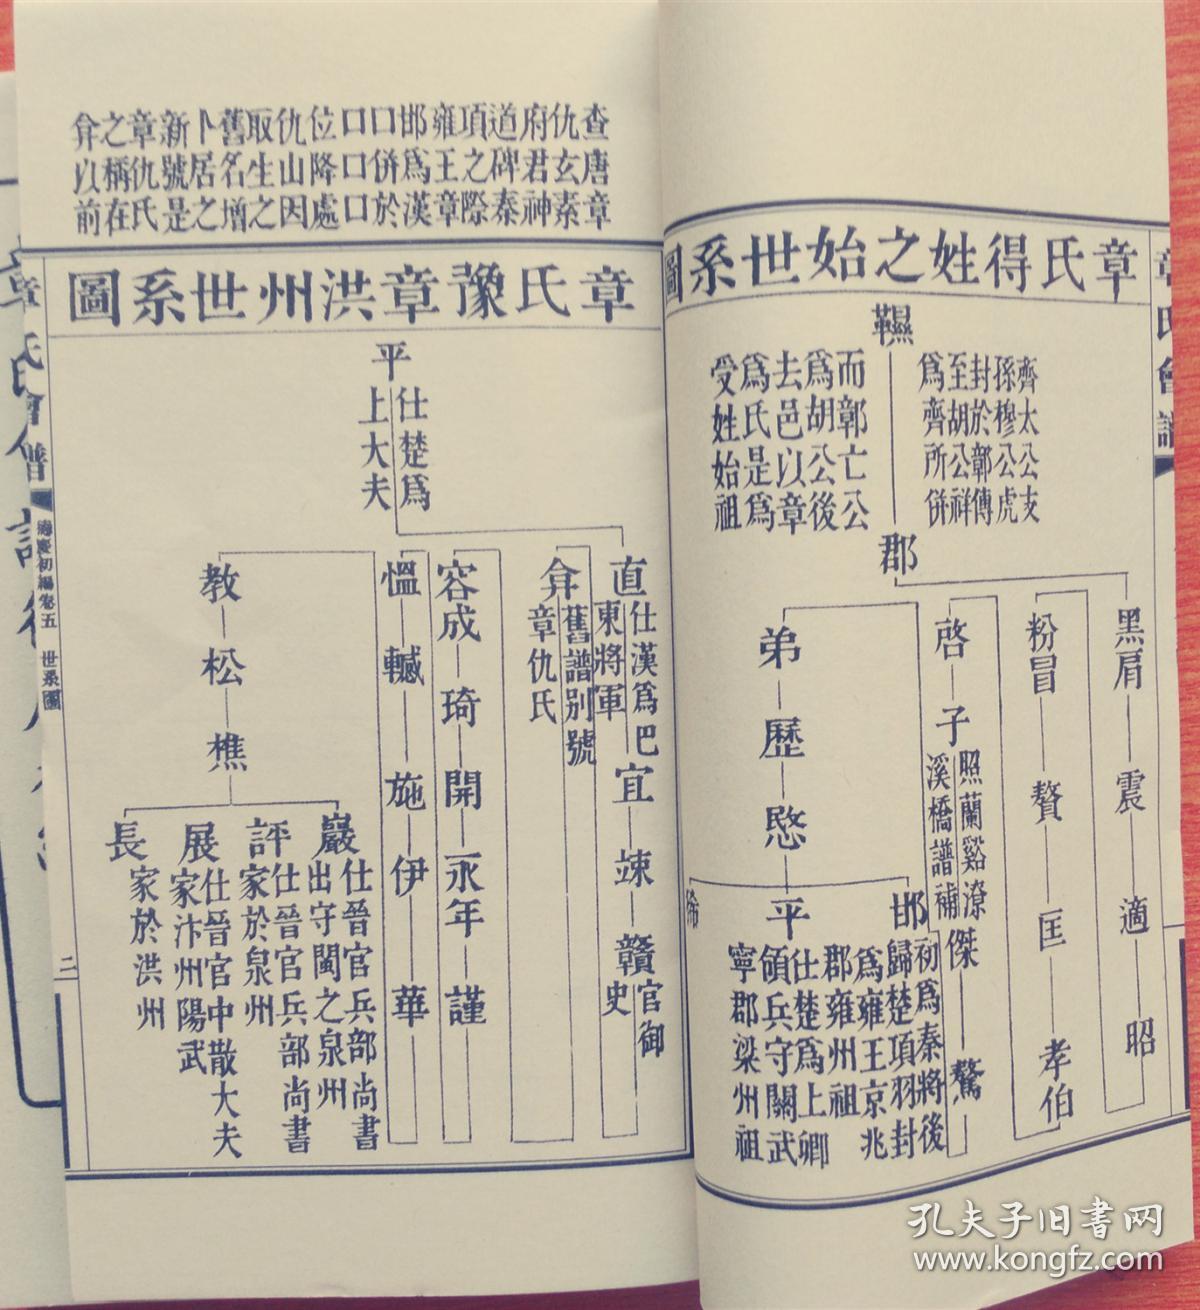 章氏得姓之始世系圖
韅
齊太公支
孫穆公虎
封於鄣傳
至胡公祥
爲齊所併
而鄣亡公
爲胡公後
去邑以章
爲氏是爲
受姓始祖
郡
黑肩
震
適
昭
粉冒
贅
匡
孝伯
啓
子
照蘭谿潦
溪橋譜補
傑
驁
弟
歷
愍
邯
初爲秦將後
歸楚項羽封
爲雍王京兆
郡雍州祖
平
仕楚爲上卿
領兵守關武
寧郡梁州祖
查唐章
仇玄素
府君神
道碑秦
項之際
雍王章
邯爲漢
口併於
口口口
位降處
仇山因
取生之
舊名增
卜居之
新號是
章仇氏
之稱在
弇以前
章氏豫章洪州世系圖
平
仕楚爲
上大夫
直
仕漢爲巴
東將軍
宜
竦
贛
官御
史
弇
舊譜別號
章仇氏
容成
琦
開
永年
謹
慍
轗
施
伊
華
教
松
樵
巖
仕晉官兵部尚書
出守閩之泉州
評
仕晉官兵部尚書
家於泉州
展
仕晉官中散大夫
家汴州陽武
長
家於洪州
章氏會譜
德慶初編卷五
世系圖
二
章氏會譜
孔夫子旧书网
www.kongfz.com